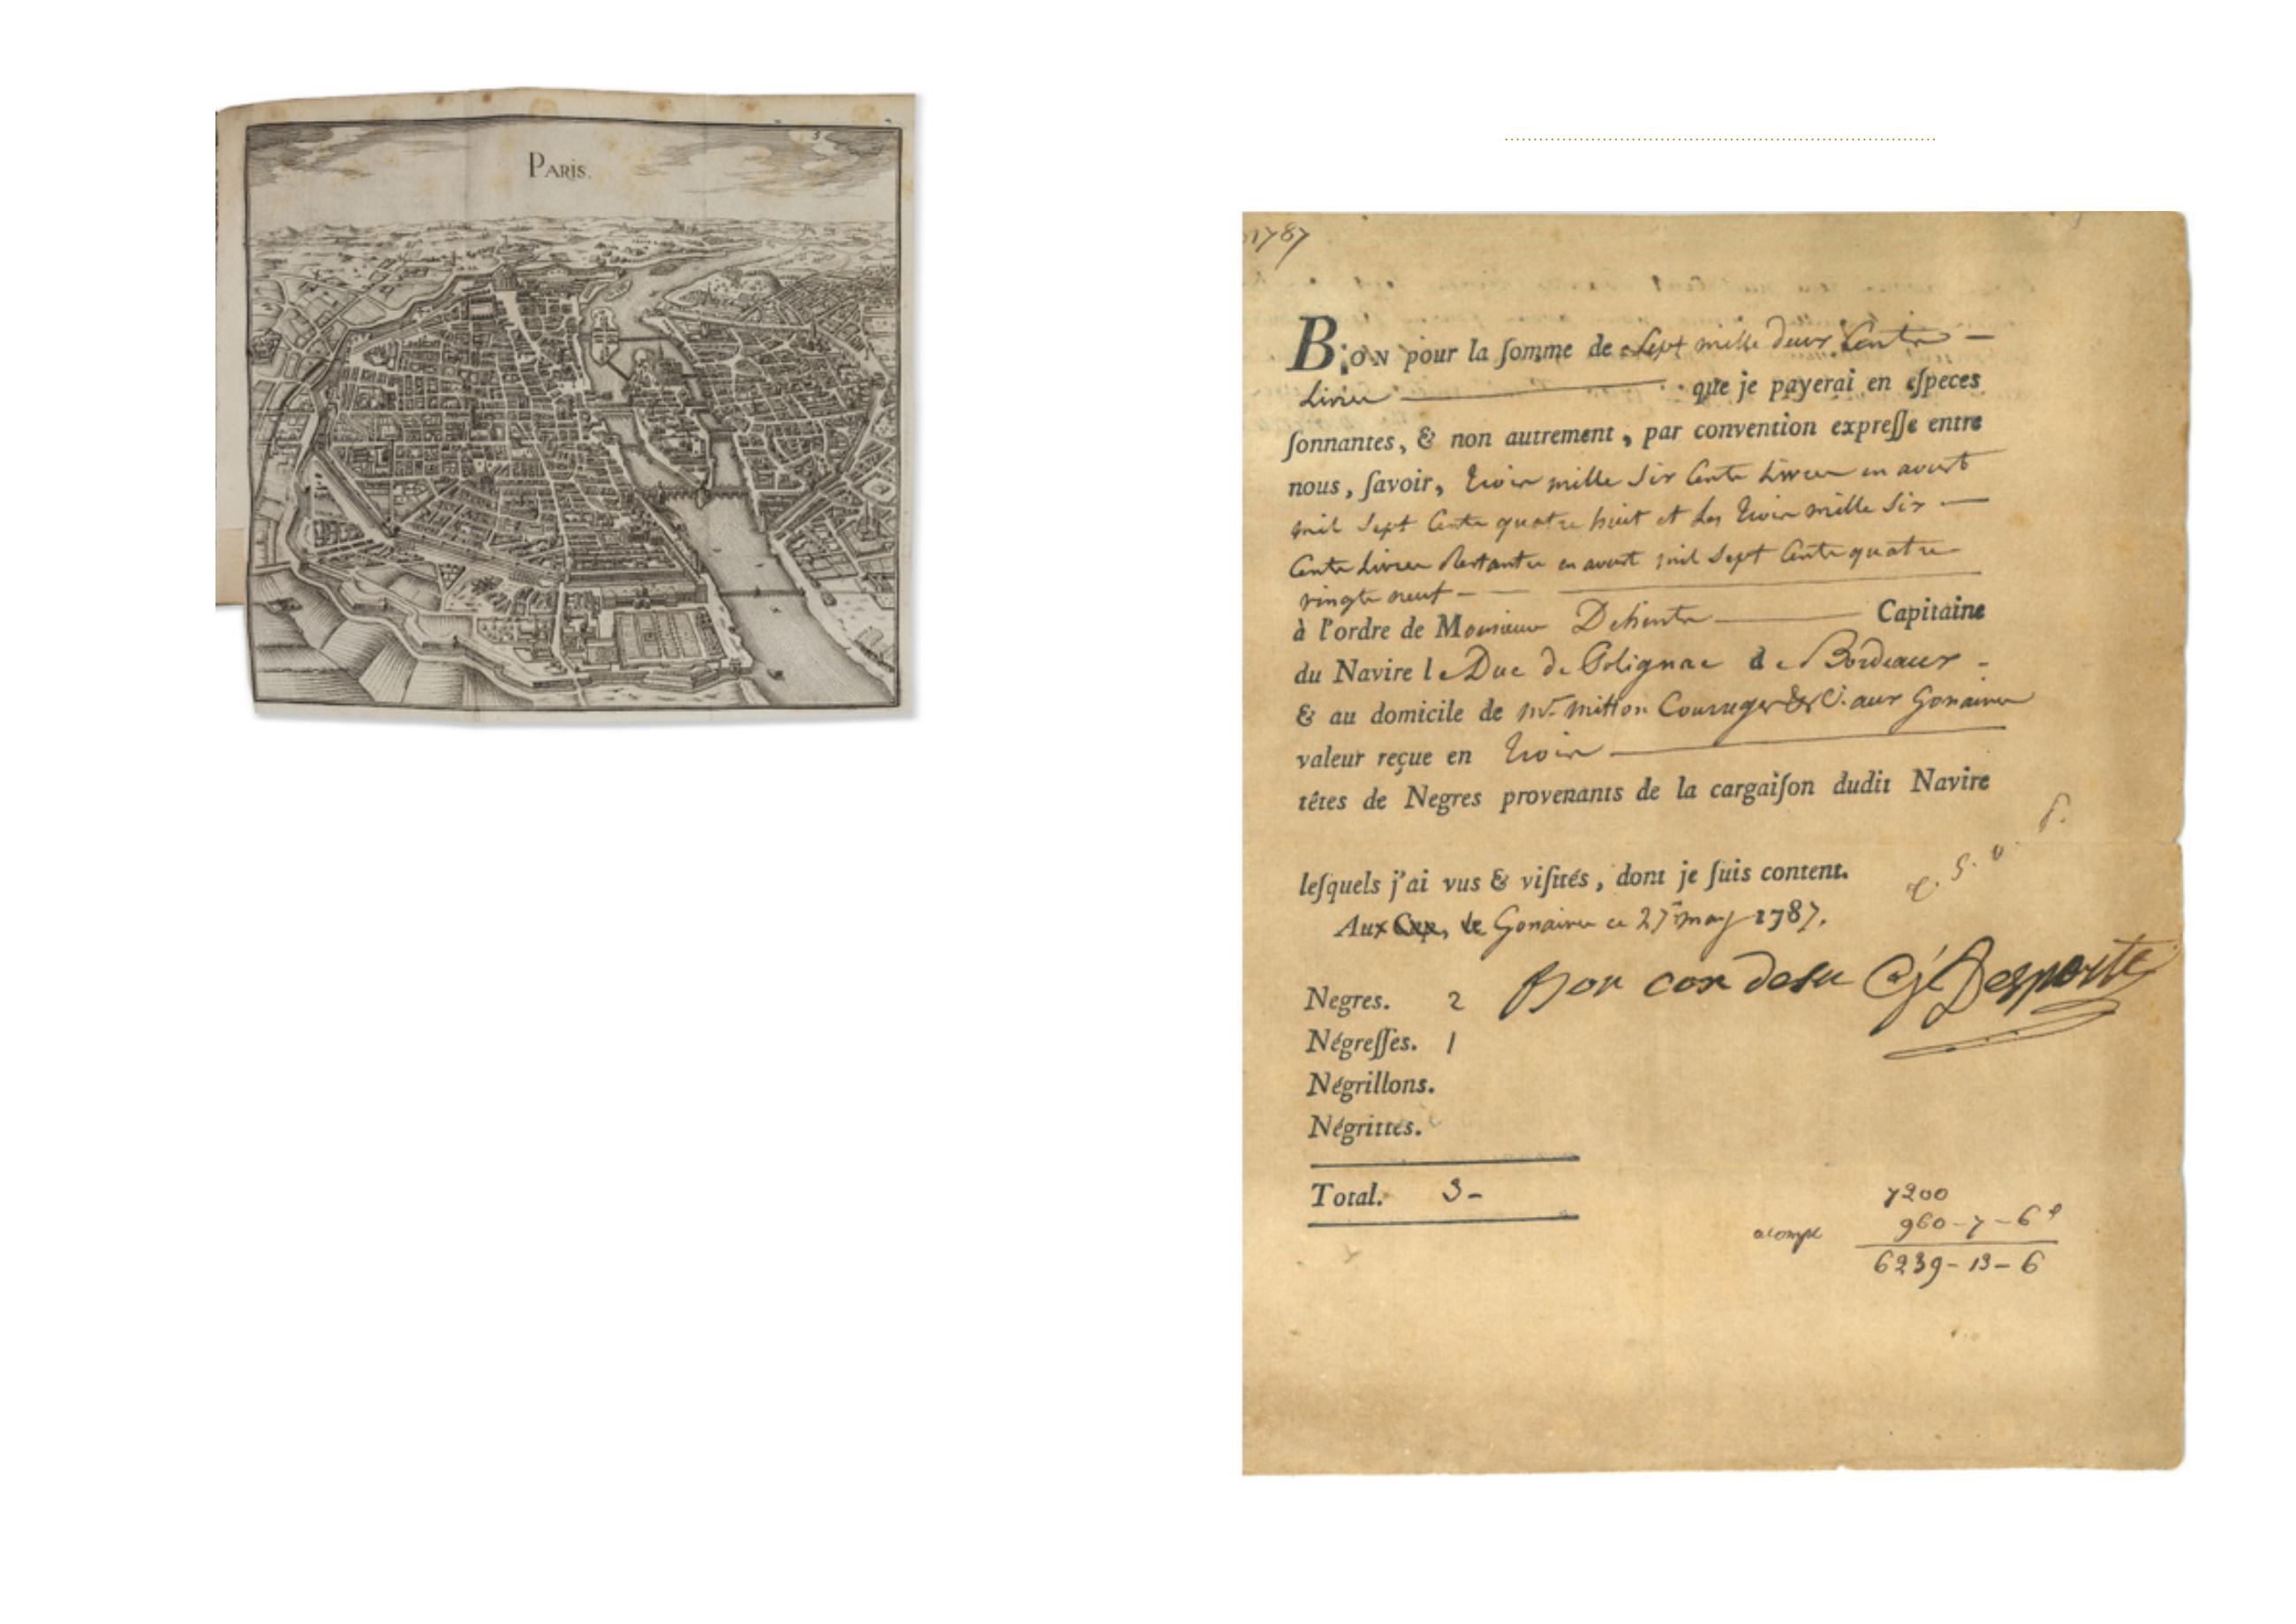 PARIS.
3
1787
BON pour la ſomme de Sept mille deux Cents —
Livres — que je payerai en eſpeces
ſonnantes, & non autrement, par convention expreſſe entre
nous, ſavoir, trois mille Six Cents Livres en avril
mil Sept Cents quatre huit et les trois mille Six —
Cents Livres Restantes en avril mil Sept Cents quatre
vingts neuf —
à l'ordre de Monsieur — Capitaine
du Navire le Duc de Polignac de Bordeaux -
& au domicile de Mr. Mitton aux Gonaives
valeur reçue en trois —
têtes de Negres provenants de la cargaiſon dudit Navire
leſquels j'ai vus & viſités, dont je ſuis content.
Aux Cap, le Gonaives ce 27 may 1787.
Negres. 2 Bon
Négreſſes. 1
Négrillons.
Négrittes.
Total. 3-
7200
acompte 960-7-6
6239-13-6